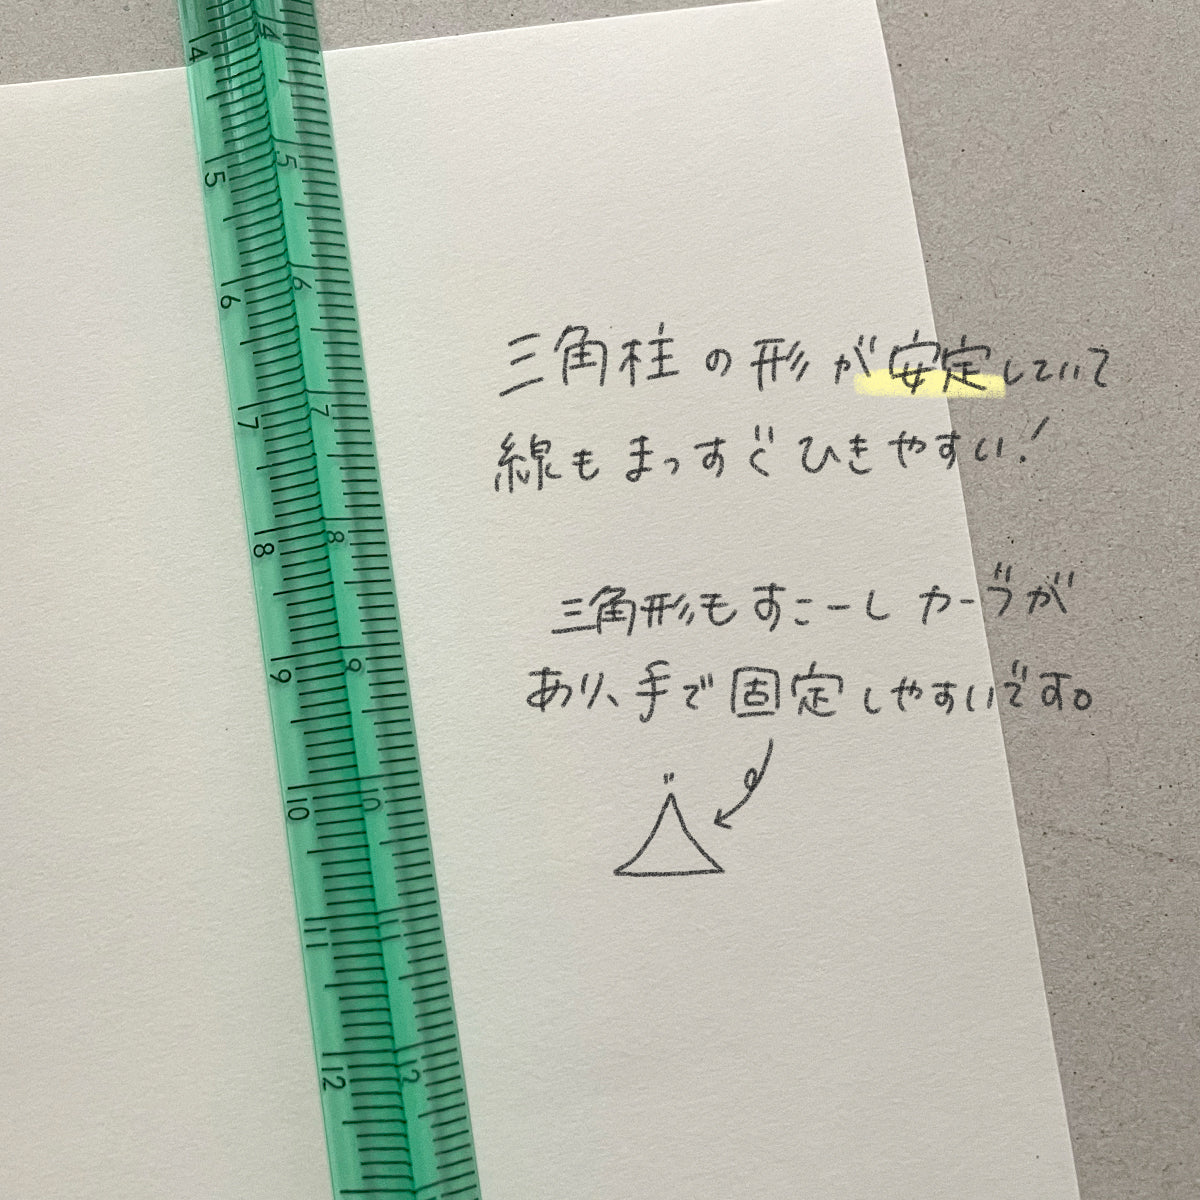 4 4
5 5
6 6
7 7
8 8
9 9
10 10
11
12 12
三角柱の形が安定していて
線もまっすぐひきやすい!
三角形もすこーしカーブが
あり、手で固定しやすいです。